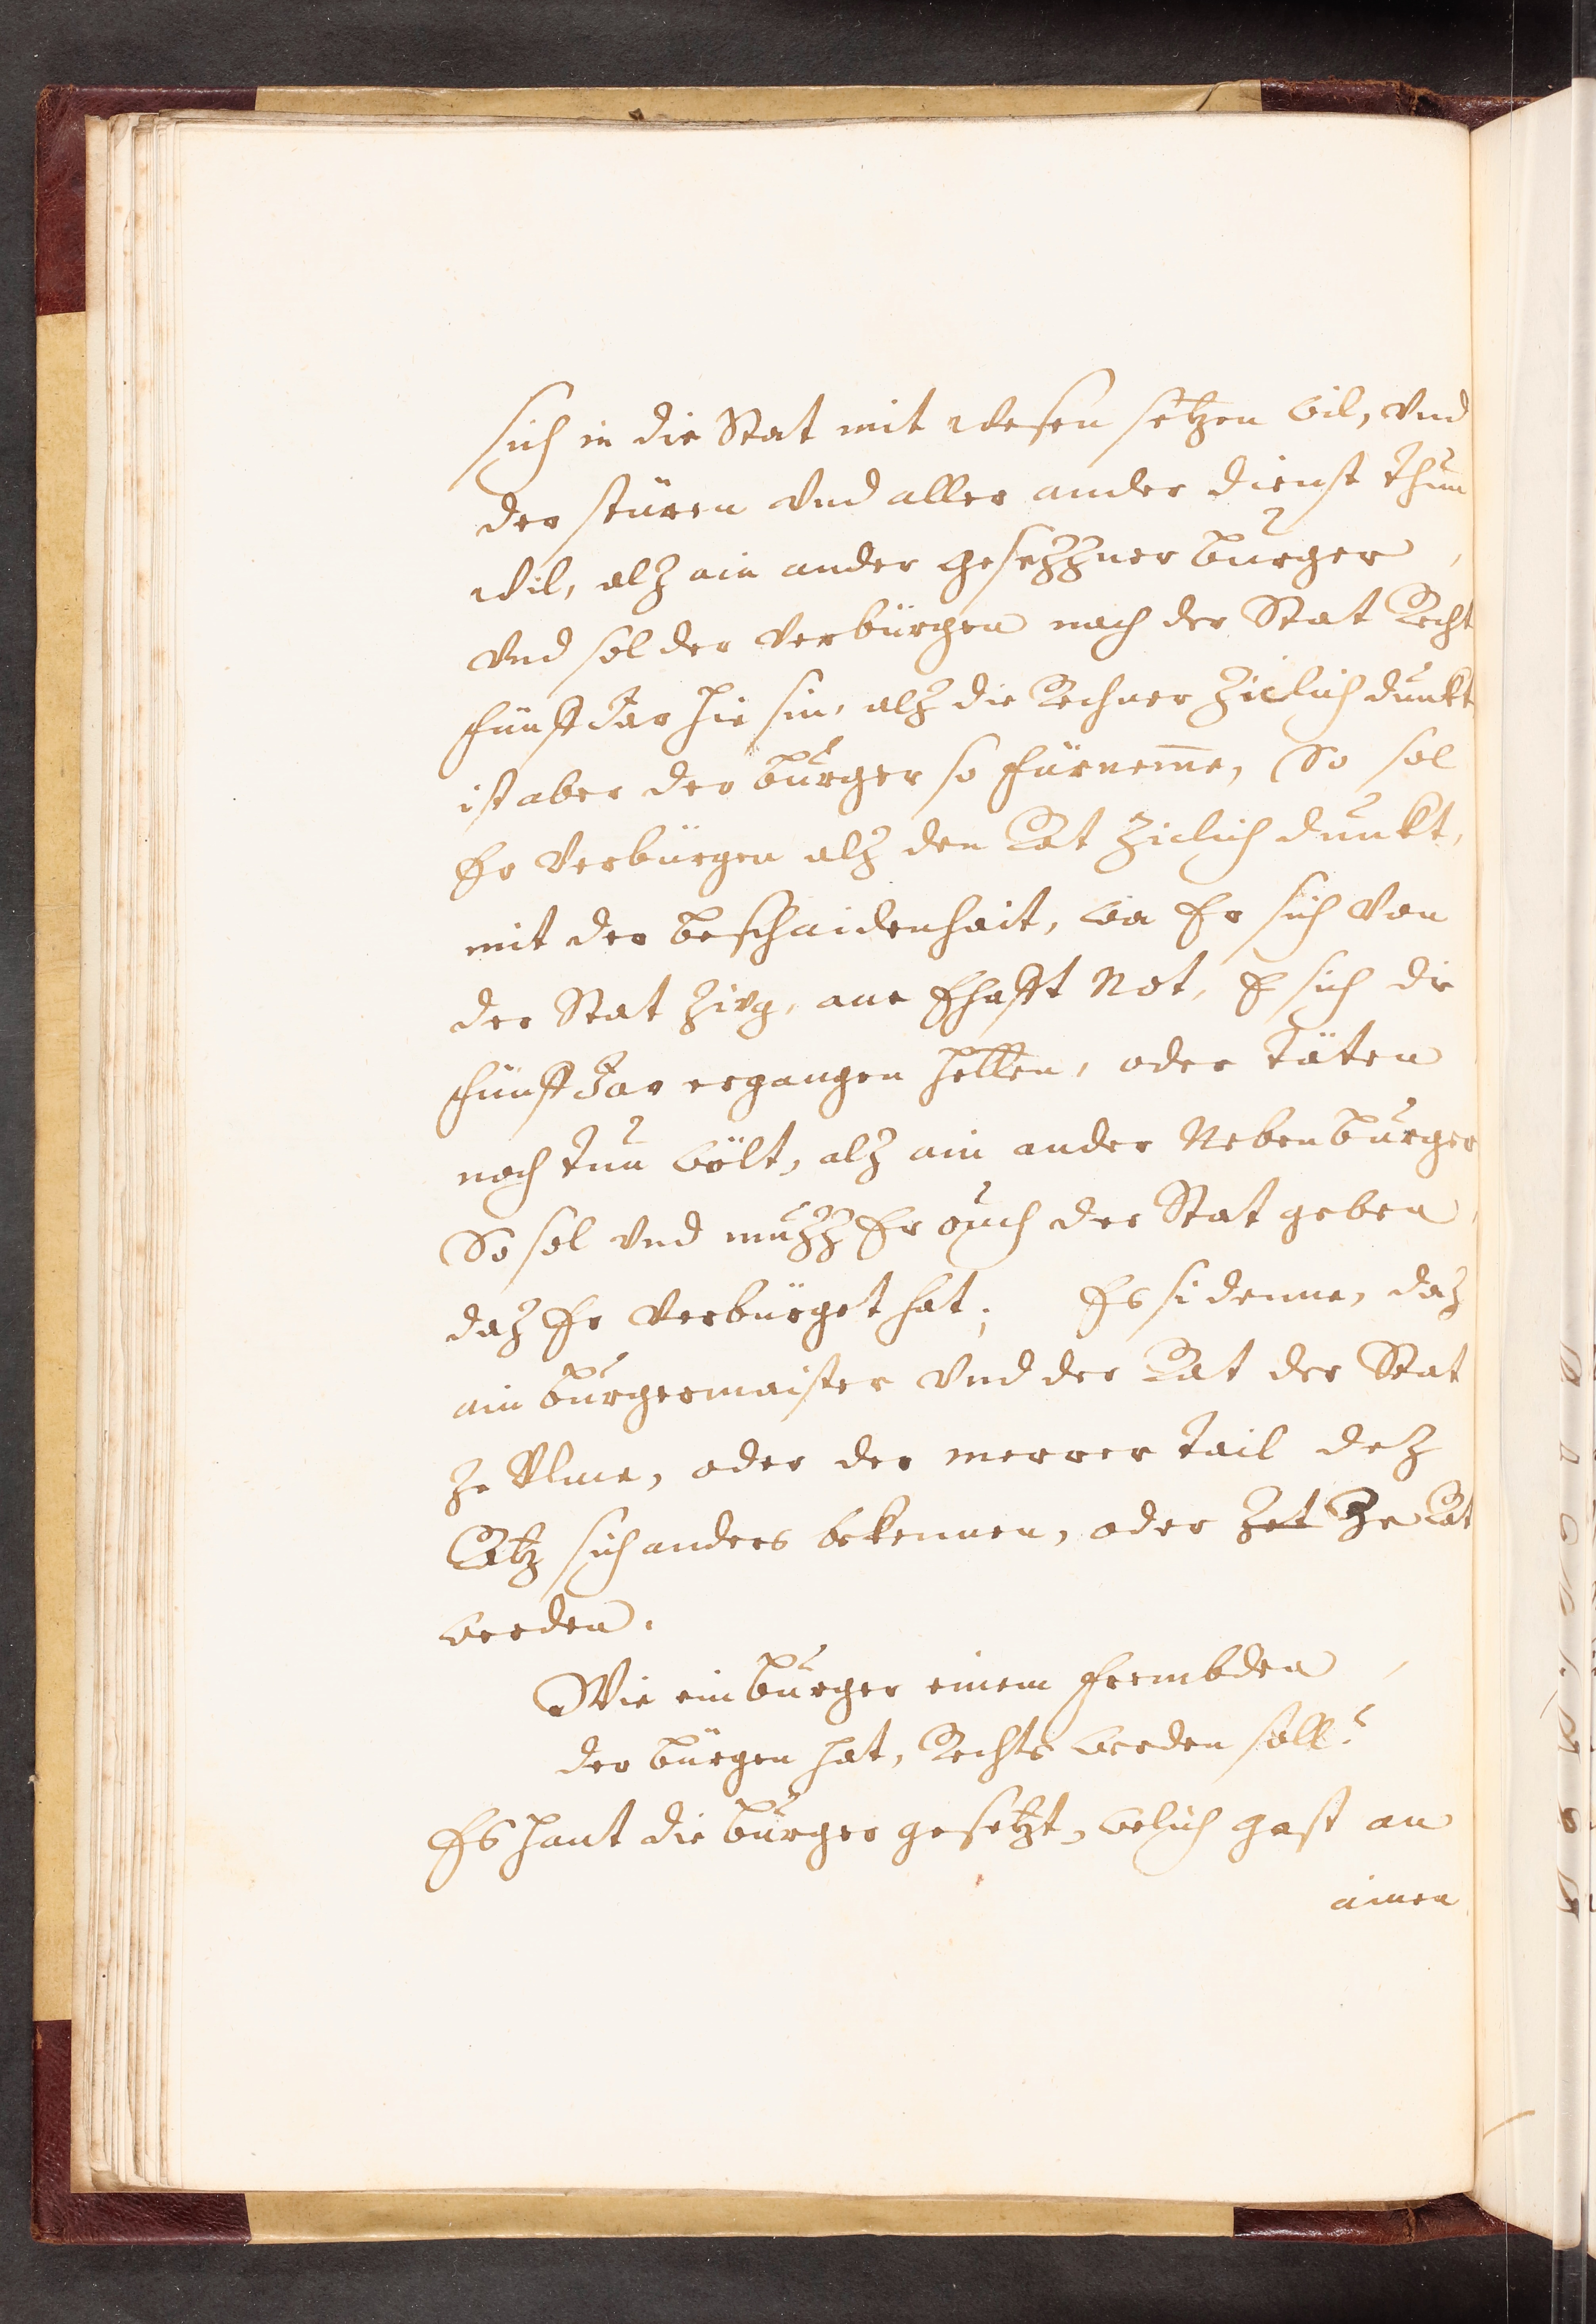 sich in die Stat mit wesen setzen wil, vnd
der stüren vnd aller ander dienst thun
wil, alz ain ander gesezzner burger,
vnd sol der verbürgen nach der Stat Recht
fünff Jar hie sin, alz die Rechner zitlich dunkt
ist aber der burger so fürneme, So sol
Er verbürgen alz den Rat zitlich dunkt,
mit der beschaidenhait, wa Er sich von
der Stat zug, ane Ehafft Not, E sich die
fünff Jar ergangen hetten, oder täten
noch tun wölt, alz ain ander Nebenburger
So sol vnd muzz Er ouch der Stat geben,
daz Er verbürget hat; Es si denne, daz
ain burgermaister vnd der Rat der Stat
ze Vlme, oder der merrer tail dez
Ratz sich anders bekennen, oder zet Ze Rat
werden.
Wie ein burger einem frembden,
der bürgen hat, Rechts werden soll?
Es hant die burger gesetzt, welich gast an
ainen